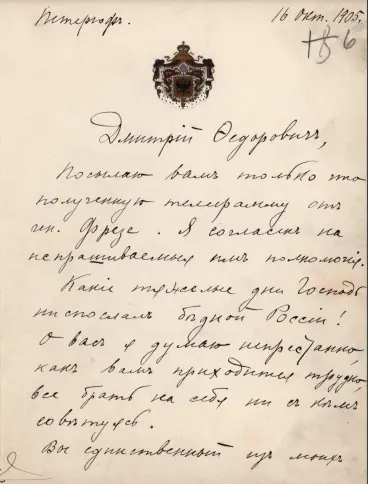 Петергофъ.
16 Окт. 1905.
186
Дмитрій Ѳедоровичъ,
Посылаю вамъ только что
полученную телеграмму отъ
ген. Фрезе. Я согласенъ на
испрашиваемыя имъ полномочія.
Какіе тяжелые дни Господь
ниспослалъ бѣдной Россіи!
О васъ я думаю непрестанно,
какъ вамъ приходится трудно,
все брать на себя ни съ кѣмъ
совѣтуясь.
Вы единственный изъ моихъ